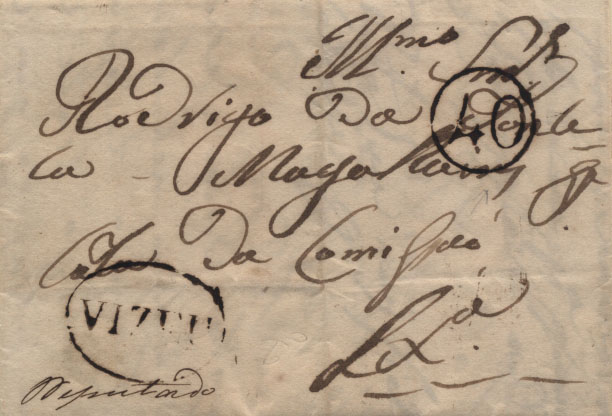 Illmo Snr
Rodrigo Da Fonce
ca - Magalhains
40
Caza Da Comissão
VIZEU
Lxa
Deputado